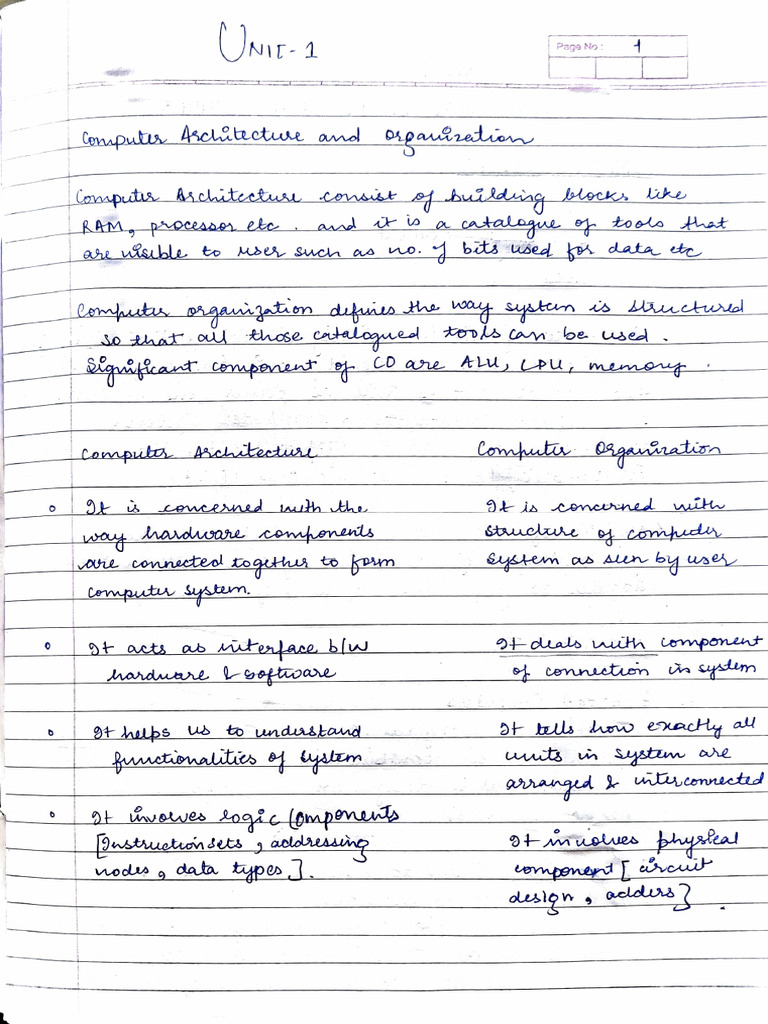 UNIT-1
Page No: 1
Computer Architecture and Organization
Computer Architecture consist of building blocks like
RAM, processor etc. and it is a catalogue of tools that
are visible to user such as no. of bits used for data etc
Computer organization defines the way system is structured
so that all those catalogued tools can be used.
Significant component of CO are ALU, CPU, memory.
Computer Architecture Computer Organization
It is concerned with the It is concerned with
way hardware components structure of computer
are connected together to form system as seen by user
computer system.
It acts as interface b/w It deals with component
hardware & software of connection in system
It helps us to understand It tells how exactly all
functionalities of system units in system are
arranged & interconnected
It involves logic components
[Instruction sets, addressing It involves physical
nodes, data types]. component [circuit
design, adders}.